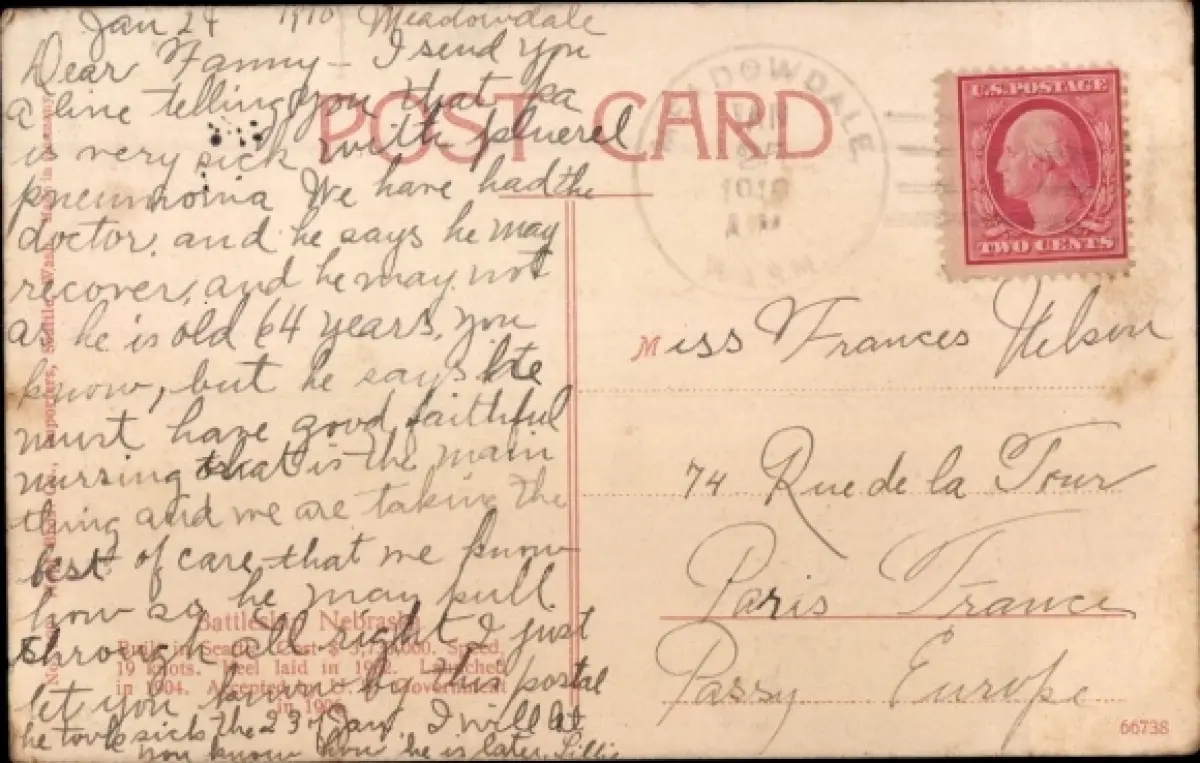 Jan 24 1910 Meadowdale
Dear Fanny – I send you
a line telling you that pa
is very sick with pluerel
pneumonia We have had the
doctor, and he says he may
recover, and he may not
as he is old 64 years, you
know, but he says he
must have good faithful
nursing that is the main
thing and we are taking the
best of care that we know
how so he may pull
through all right I just
let you know by this postal
he took sick the 23 Jan. I will let
you know how he is later. Lillie
POST CARD
MEADOWDALE
1910
WASH
U.S. POSTAGE
TWO CENTS
Miss Frances Nelson
74 Rue de la Tour
Paris France
Passy Europe
Battleship Nebraska
Built in Seattle. Cost $ Speed,
19 knots. Keel laid in 1902. Launched
in 1904. Accepted by U. S. Government
in
Importers, Seattle, Wash.
66738